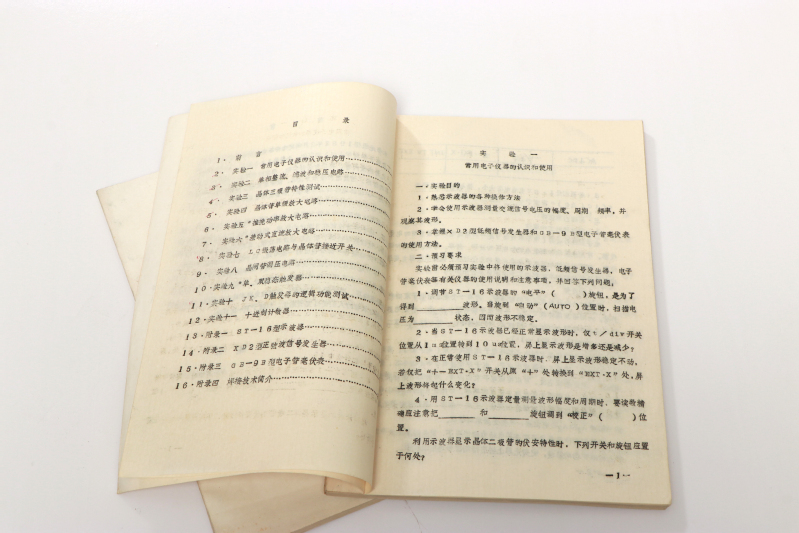 目 录
1. 前言
2. 实验一 常用电子仪器的认识和使用
3. 实验二 单相整流、滤波和稳压电路
4. 实验三 晶体三极管特性测试
5. 实验四 晶体管单级放大电路
6. 实验五*推挽功率放大电路
7. 实验六*差动式直流放大电路
8. 实验七 LC振荡电路与晶体管接近开关
9. 实验八 晶闸管调压电路
10. 实验九*单、双稳态触发器
11. 实验十 JK、D触发器的逻辑功能测试
12. 实验十一 十进制计数器
13. 附录一 ST—16型示波器
14. 附录二 XD2型正弦波信号发生器
15. 附录三 GB—9B型电子管毫伏表
16. 附录四 焊接技术简介
实 验 一
常用电子仪器的认识和使用
一·实验目的
1·熟悉示波器的各种操作方法
2·学会使用示波器测量交流信号电压的幅度、周期 频率，并
观察其波形。
3·掌握XD2型低频信号发生器和GB—9B型电子管毫伏表
的使用方法。
二·预习要求
实验前必须预习实验中件使用的示波器，低频信号发生器，电子
管毫伏表等有关仪器的使用说明和注意事项，并回答下列问题。
1·调节ST—16示波器的“电平”（ ）旋钮，是为了
得到 波形。当旋到“自动”（AUTO）位置时，扫描电
压为 状态，因而波形不稳定。
2·当ST—16示波器已经正常显示波形时，仅t/div开关
位置从1ms位置转到10us位置，屏上显示波形是增多还是减少？
3·在正常使用ST—16示波器时，屏上显示波形稳定不动，
若仅把“+—EXT·X”开关从原“+”处转换到“EXT·X”处，屏
上波形将起什么变化？
4·用ST—16示波器定量测量波形幅度和周期时，要读数精
确应注意把 和 旋钮调到“校正”（ ）位
置。
利用示波器显示晶体二极管的伏安特性时，下列开关和旋钮应置
于何处？
—1—